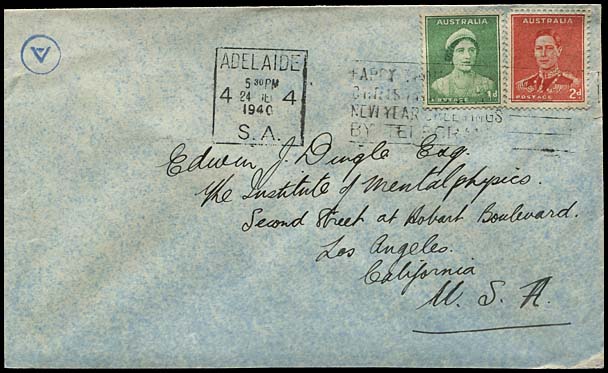 ADELAIDE
5 30 PM
4 24 DE 4
1940
S. A.
HAPPY
CHRIST
NEW YEAR GREETINGS
BY TELEGRAM
AUSTRALIA
POSTAGE 1d
AUSTRALIA
POSTAGE 2d
Edwin J. Dingle Esq.
The Institute of Mentalphysics.
Second Street at Hobart Boulevard.
Los Angeles.
California
U. S. A.